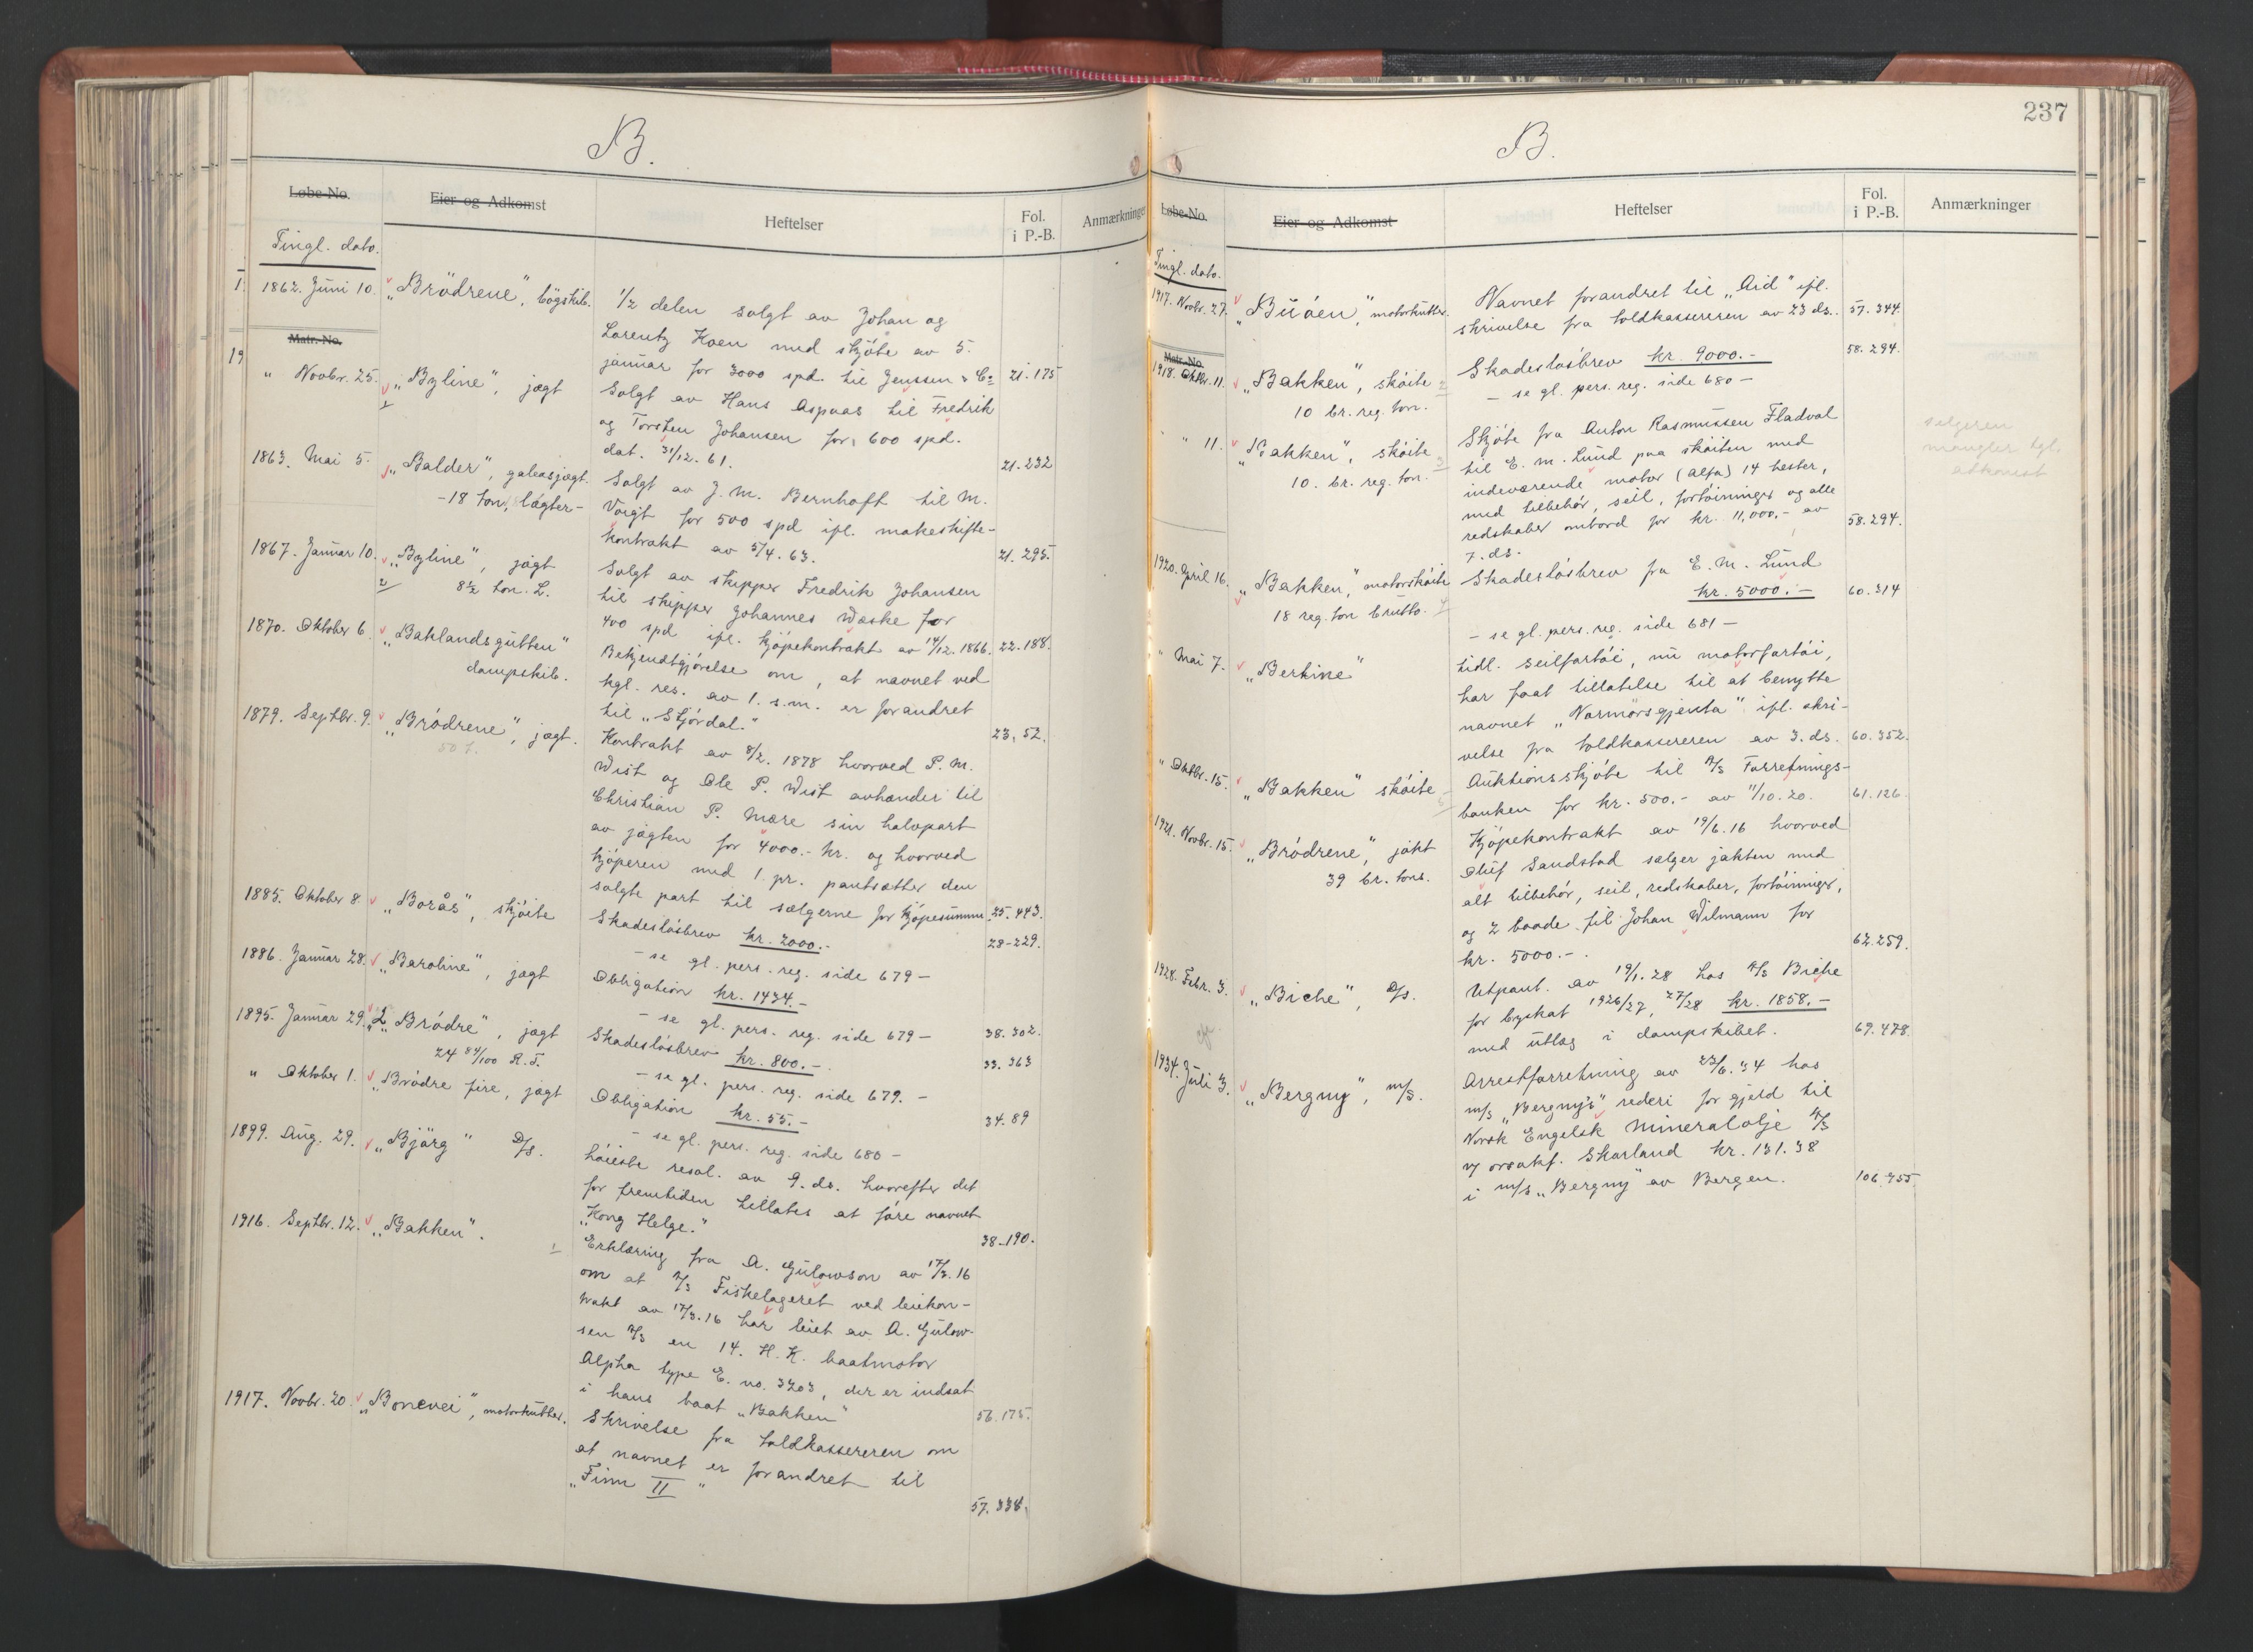 B.
Løbe-No.
Eier og Adkomst
Heftelser
Fol.
i P.-B.
Anmærkninger
Tingl. dato.
1862. Juni 10.
„Brödrene",
1/2 delen solgt av Johan og
Lorentz Koen med skjöte av 5.
januar for 3000 spd. til Jenssen & Co
21.175
Matr.-No.
" Novbr. 25.
„Byline", jægt
1
Solgt av Hans Aspaas til Fredrik
og Torsten Johansen for 600 spd.
dat. 31/12. 61.
21.232
1863. Mai 5.
„Balder", galeasjagt.
-18 ton, lægter-
Solgt av J. M. Bernhoft til M.
Voigt for 500 spd ifl. makeskifte-
kontrakt av 5/4. 63.
21.295.
1867. Januar 10.
„Byline", jagt
2 8½ ton. L.
Solgt av skipper Fredrik Johansen
til skipper Johannes Wæske for
400 spd ifl. kjöpekontrakt av 14/12. 1866.
22.188.
1870. Oktober 6.
„Baklandsgutten"
dampskib.
Bekjendtgjörelse om, at navnet ved
kgl. res. av 1. s.m. er forandret
til „Stjördal."
23.52.
1879. Septbr. 9.
„Brödrene", jagt.
Kontrakt av 8/2. 1878 hvorved P. M.
Wist og Ole P. Wist avhænder til
Christian P. Mære sin halvpart
av jagten for 4000.- kr. og hvorved
kjöperen med 1. pr. pantsætter den
solgte part til sælgerne for kjöpesummen.
25.443.
1885. Oktober 8.
„Borås", skjöite
Skadeslösbrev kr. 2000.-
- se gl. pers. reg. side 679 -
28-229.
1886. Januar 28.
„Baroline", jagt
Obligation kr. 1434.-
- se gl. pers. reg. side 679 -
38.302.
1895. Januar 29.
„2 Brödre", jagt
24 84/100 R.T.
Skadeslösbrev kr. 800.-
- se gl. pers. reg. side 679. -
33.363
" Oktober 1.
„Brödre fire, jagt
Obligation kr. 55.-
- se gl. pers. reg. side 680 -
34.89
1899. Aug. 29.
„Bjärg" D/S.
höieste resol. av 9. ds. hvorefter det
for fremtiden tillates at före navnet
„Kong Helge."
38-190.
1916. Septbr. 12.
„Bakken".
1
Erklæring fra A. Gulowson av 17/3. 16
om at A/S Fiskelageret ved leiekon-
trakt av 17/3. 16 har leiet av A. Gulow-
sen A/S en 14. H.K. baatmotor
Alpha type E. no. 3203, der er indsat
i hans baat „Bakken"
56.175.
1917. Novbr. 20.
„Bonevei", motorkutter.
Skrivelse fra toldkassereren om
at navnet er forandret til
„Finn II"
57.338.
237
B.
Løbe-No.
Eier og Adkomst
Heftelser
Fol.
i P.-B.
Anmærkninger
Tingl. dato.
1917. Novbr. 27.
„Buöen", motorkutter.
Navnet forandret til „Aid" ifl.
skrivelse fra toldkassereren av 23 ds.
57.344.
Matr.-No.
1918. Oktbr. 11.
„Bakken", sköite
2
10 br. reg. ton.
Skadeslösbrev kr. 9000.-
- se gl. pers. reg. side 680 -
58.294.
" 11.
„Bakken", sköite
3
10. br. reg. ton.
Skjöte fra Anton Rasmussen Fladval
til E. M. Lund paa sköiten med
indeværende motor (Alfa) 14 hester,
med tilbehör, seil, fortöininger og alle
redskaber ombord for kr. 11,000.- av
7. ds.
58.294.
selgeren
mangler tgl.
atkomst
1920. April 16.
„Bakken", motorsköite
18 reg. ton brutto. 4
Skadeslösbrev fra E. M. Lund
kr. 5000.-
- se gl. pers. reg. side 681 -
60.314
" Mai 7.
„Berhine"
tidl. seilfartöi, nu motorfartöi,
har faat tillatelse til at benytte
navnet „Normörsgjenta" ifl. skri-
velse fra toldkassereren av 3. ds.
60.352.
" Oktbr. 15.
„Bakken" sköite
5
Auktionsskjöte til A/S Forretnings-
banken for kr. 500.- av 11/10. 20.
61.126.
1921. Novbr. 15.
„Brödrene", jakt
39 br. tons.
Kjöpekontrakt av 19/6. 16 hvorved
Oluf Sandstad sælger jakten med
alt tilbehör, seil, redskaber, fortöininger,
og 2 baade til Johan Wilmann for
kr. 5000.-.
62.259.
1928. Febr. 3.
„Biche", D/S.
Utpant. av 19/1. 28 hos A/S Biche
for byskat 1926/27, 27/28 kr. 1858.-
med utlæg i dampskibet.
69.478.
1934. Juli 3.
„Bergny", m/s.
Arrestforretning av 23/6. 34 hos
m/s „Bergny's" rederi for gjeld til
Norsk Engelsk Mineralolje A/S
v/ orsakf. Skarland kr. 131.38
i m/s „Bergny" av Bergen.
106.755.